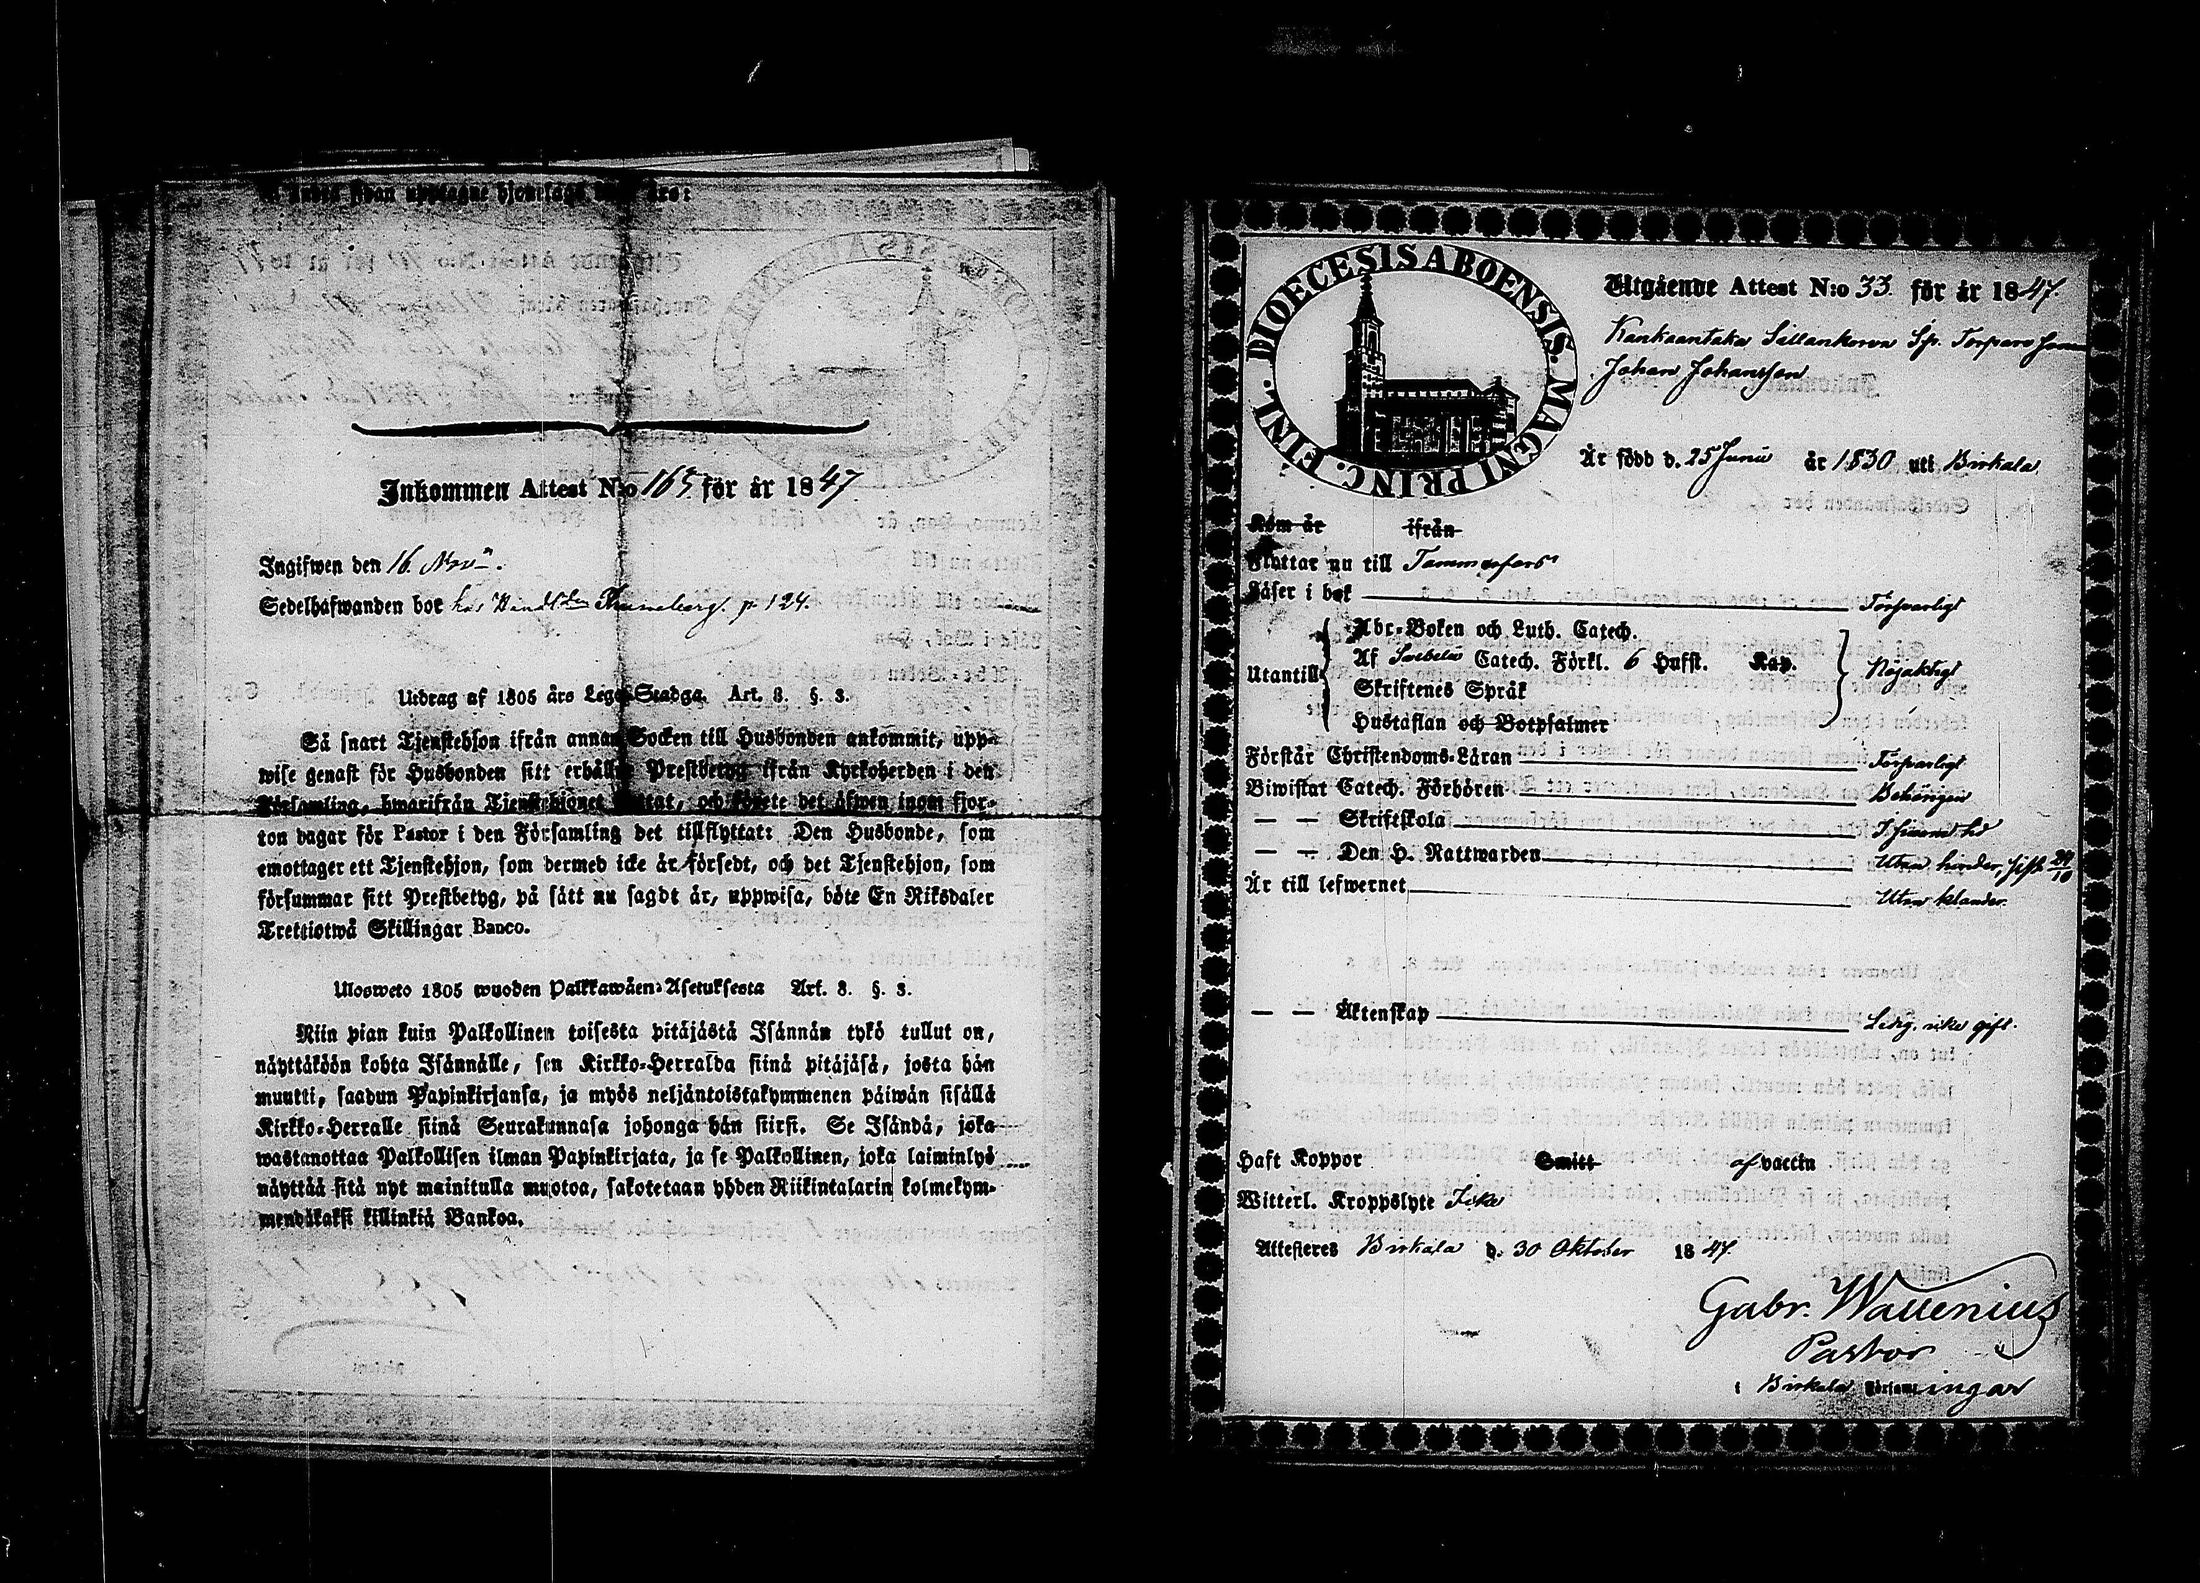 Inkommen Attest N:o 165 för år 1847
Ingifwen den 16. Nov.
Sedelhafwanden bor hos Thuneberg. p 124.
Utdrag af 1805 års Lego-Stadga. Art. 8. §. 3.
Så snart Tjenstehjon ifrån annan Socken till Husbonden ankommit, upp-
wise genast för Husbonden sitt erhållne Prestbetyg ifrån Kyrkoherden i den
Församling, hwarifrån Tjenstehjonet flyttat, och förete det äfwen inom fjor-
ton dagar för Pastor i den Församling det tillflyttat: Den Husbonde, som
emottager ett Tjenstehjon, som dermed icke är försedt, och det Tjenstehjon, som
försummar sitt Prestbetyg, på sätt nu sagdt är, uppwisa, böte En Riksdaler
Trettiotwå Skillingar Banco.
Ulosweto 1805 wuoden Palkkawäen-Asetuksesta Art. 8. §. 3.
Niin pian kuin Palkollinen toisesta pitäjästä Isännän tykö tullut on,
näyttäköön kohta Isännälle, sen Kirkko-Herralda siinä pitäjäsä, josta hän
muutti, saadun Papinkirjansa, ja myös neljäntoistakymmenen päiwän sisällä
Kirkko-Herralle siinä Seurakunnasa johonga hän siirsi. Se Isändä, joka
wastanottaa Palkollisen ilman Papinkirjata, ja se Palkollinen, joka laiminlyö
näyttää sitä nyt mainitulla muotoa, sakotetaan yhden Riikintalarin kolmekym-
mendäkaksi killinkiä Bankoa.
DIOECESIS ABOENSIS. MAGNI PRINC. FINL.
Utgående Attest N:o 33. för år 1847.
Kankaantaka Sillankorva Sp. Torpare son
Johan Johansson
Är född d. 25 Junii år 1830 uti Birkala
Kom år ifrån
Flyttar nu till Tammerfors
Läser i bok Försvarligt
Abc-Boken och Luth. Catech.
Utantill Af Svebelii Catech. Förkl. 6 Hufst. Kap. Nöjaktigt
Skriftenes Språk
Hustaflan och Botpsalmer
Förstår Christendoms-Läran Försvarligt
Biwistat Catech. Förhören Behörigen
— — Skriftskola I sinom tid
— — Den H. Nattwarden Utan hinder, sist 24/10
Är till lefwernet Utan klander.
— — Äktenskap Ledig, icke gift.
Haft Koppor Smitt af vaccin
Witterl. Kroppslyte Icke
Attesteres Birkala d. 30 Oktober 1847.
Gabr. Wallenius
Pastor
i Birkala Församlingar